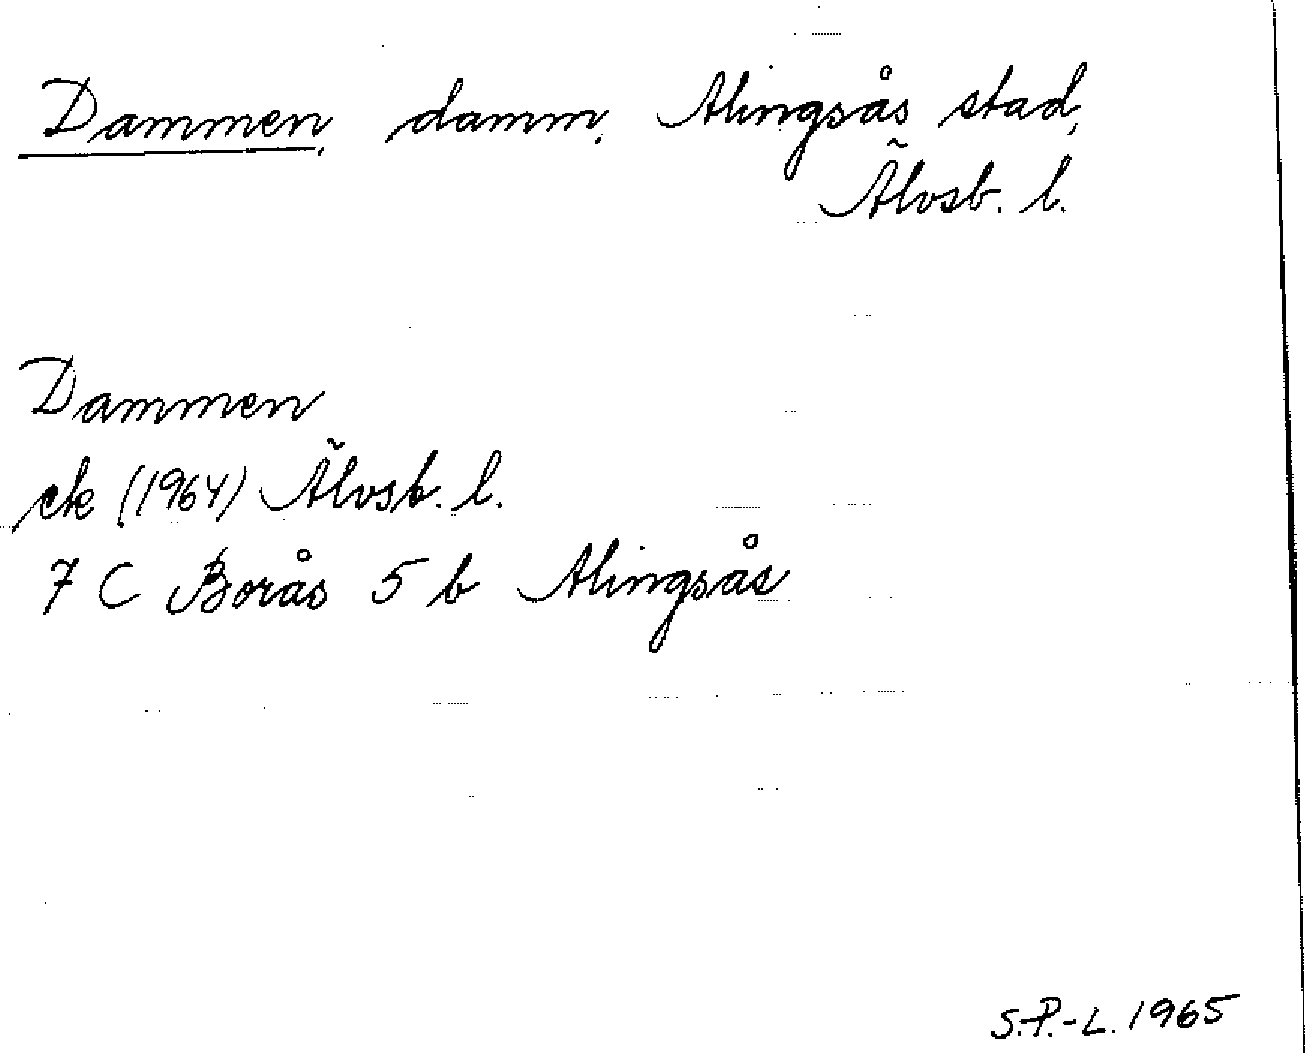 Dammen, damm, Alingsås stad,
Älvsb. l.
Dammen
ek (1964) Älvsb. l.
7 C Borås 5 b Alingsås
S.P.-L. 1965